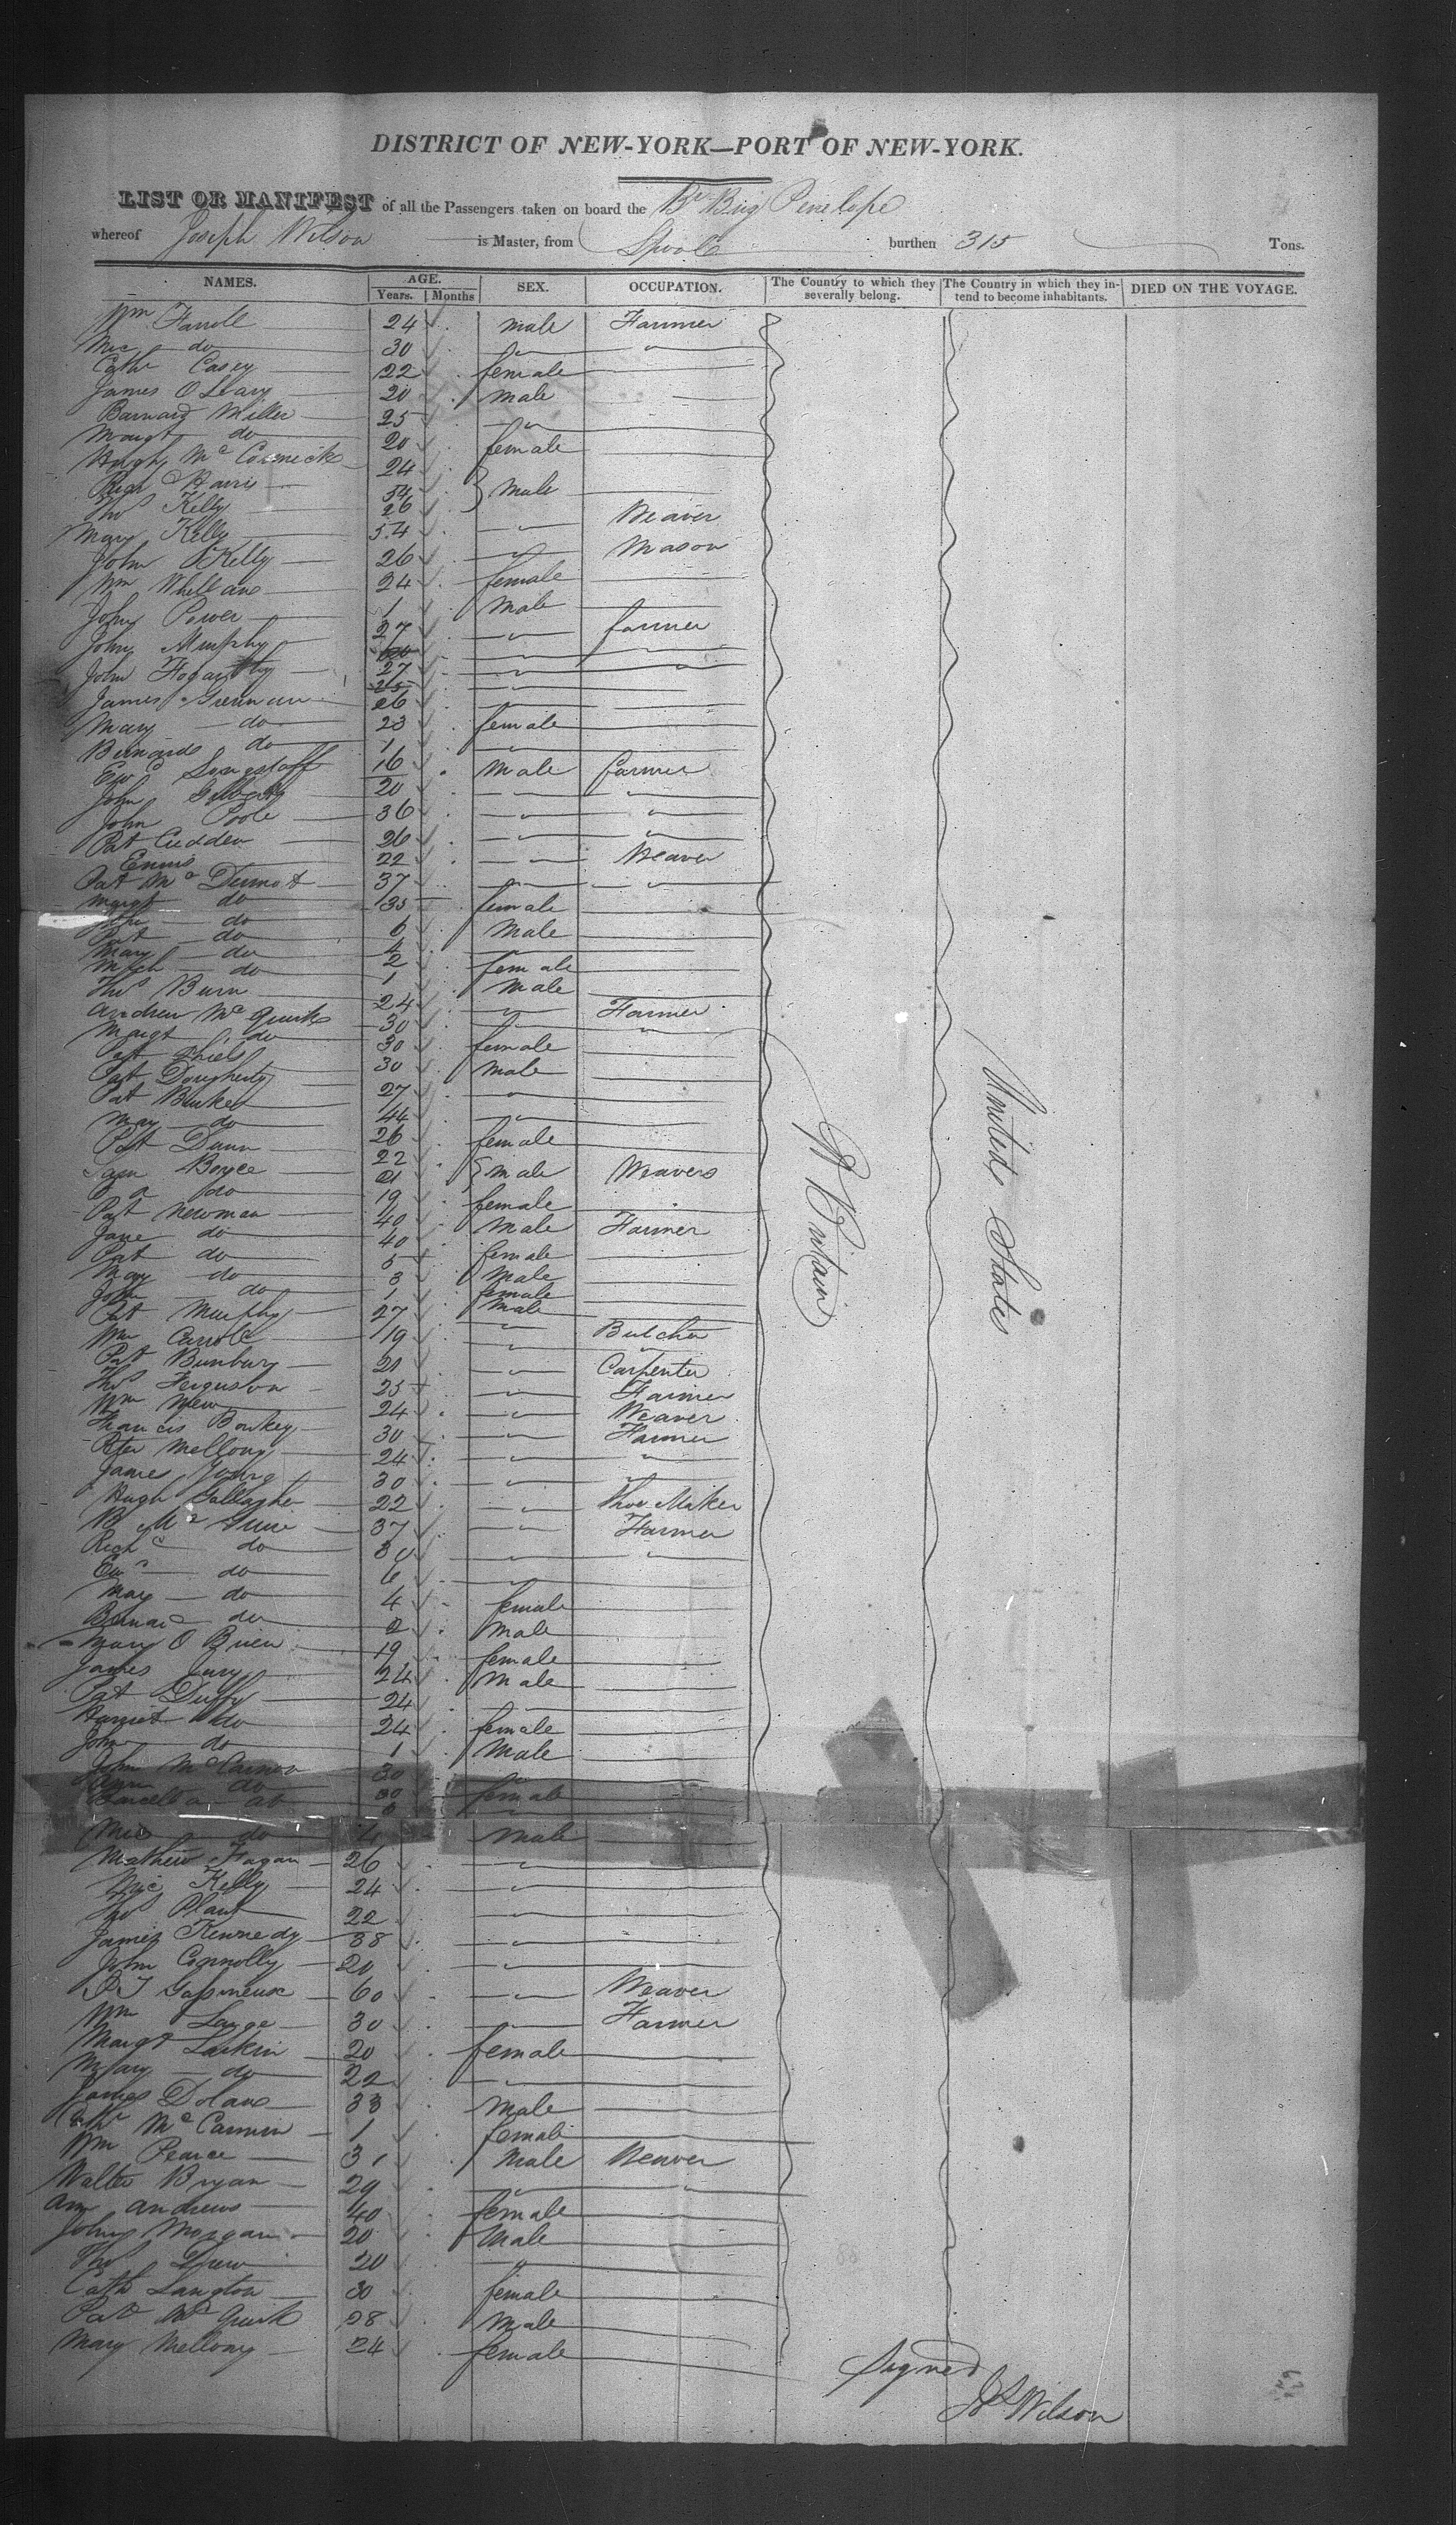 DISTRICT OF NEW-YORK—PORT OF NEW-YORK.
LIST OR MANIFEST of all the Passengers taken on board the Br Brig Penelope
whereof Joseph Wilson is Master, from Lpool burthen 315 Tons.
NAMES. AGE. Years. Months SEX. OCCUPATION. The Country to which they severally belong. The Country in which they intend to become inhabitants. DIED ON THE VOYAGE.
Wm Farrell 24 male Farmer
Mic do 30 " "
Cathe Casey 22 female
James O Leary 20 male
Barnard Miller 25 "
Margt do 20 female
Hugh Mc Cormick 24
Rich Harris 54 male
Thos Kelly 26 Weaver
Mary Kelly 54 "
John Kelly 26 " Mason
Wm Whelland 24 female
John Power 1 male
John Murphy 27 " farmer
John Fogarthy 27 " "
James Grennan 26
Mary do 23 female
Bernard do 1 "
Edwd Longstaff 16 male farmer
John 20 " "
John Poole 36 " "
Pat Cudden 26 " "
Ennis 22 " Weaver
Pat Mc Dermot 37 " "
Margt do 35 female
John do 6 male
Pat do 4 "
Mary do 2 female
Mich do 1 male
Thos Burn 24 " Farmer
Andrew Mc Quirk 30 " "
Margt do 30 female
Pat Shiels 30 male
Pat Dougherty 27 "
Pat Burke 44 "
Mary do 26 female
Pat Dunn 22 male Weavers
Sam Boyce 21
do 19 female
Pat Newman 40 male Farmer
Jane do 40 female
Pat do 5 male
Mary do 3 female
John do 1 male
Pat Murphy 27 " Butcher
Wm Carroll 19 " "
Pat Bunbury 21 " Carpenter
Thos Ferguson 25 " Farmer
Wm Mew 24 " Weaver
Francis Bowkey 30 " Farmer
Peter Mellony 24 " "
James Young 30 " "
Hugh Gallagher 22 " Shoe Maker
B Mc Guire 37 " Farmer
Richd do 30 " "
Edwd do 6 "
Mary do 4 female
Bernard do 2 male
Mary O Brien 19 female
James Jury 24 male
Pat Duffy 24 "
Harriet do 24 female
John do 1 male
John Mc Cannon 30 "
Ann do 30 female
Marcella do 6 "
Mic do 4 male
Mathew Fagan 26 "
Mic Kelly 24 "
Thos Plant 22 "
James Kennedy 38 "
John Connolly 20 "
P J 60 " Weaver
Wm Large 30 " Farmer
Margt Larkin 20 female
Mary do 22 "
James Dolan 33 male
Cathe Mc Cannin 1 female
Wm Pearce 31 male Weaver
Walter Bryan 29 " "
Ann Andrews 40 female
John Morgan 20 male
Thos Drew 20 "
Cath Langton 30 female
Pat Mc Quirk 28 male
Mary Mellony 24 female
G Britain
United States
Signed
Js Wilson